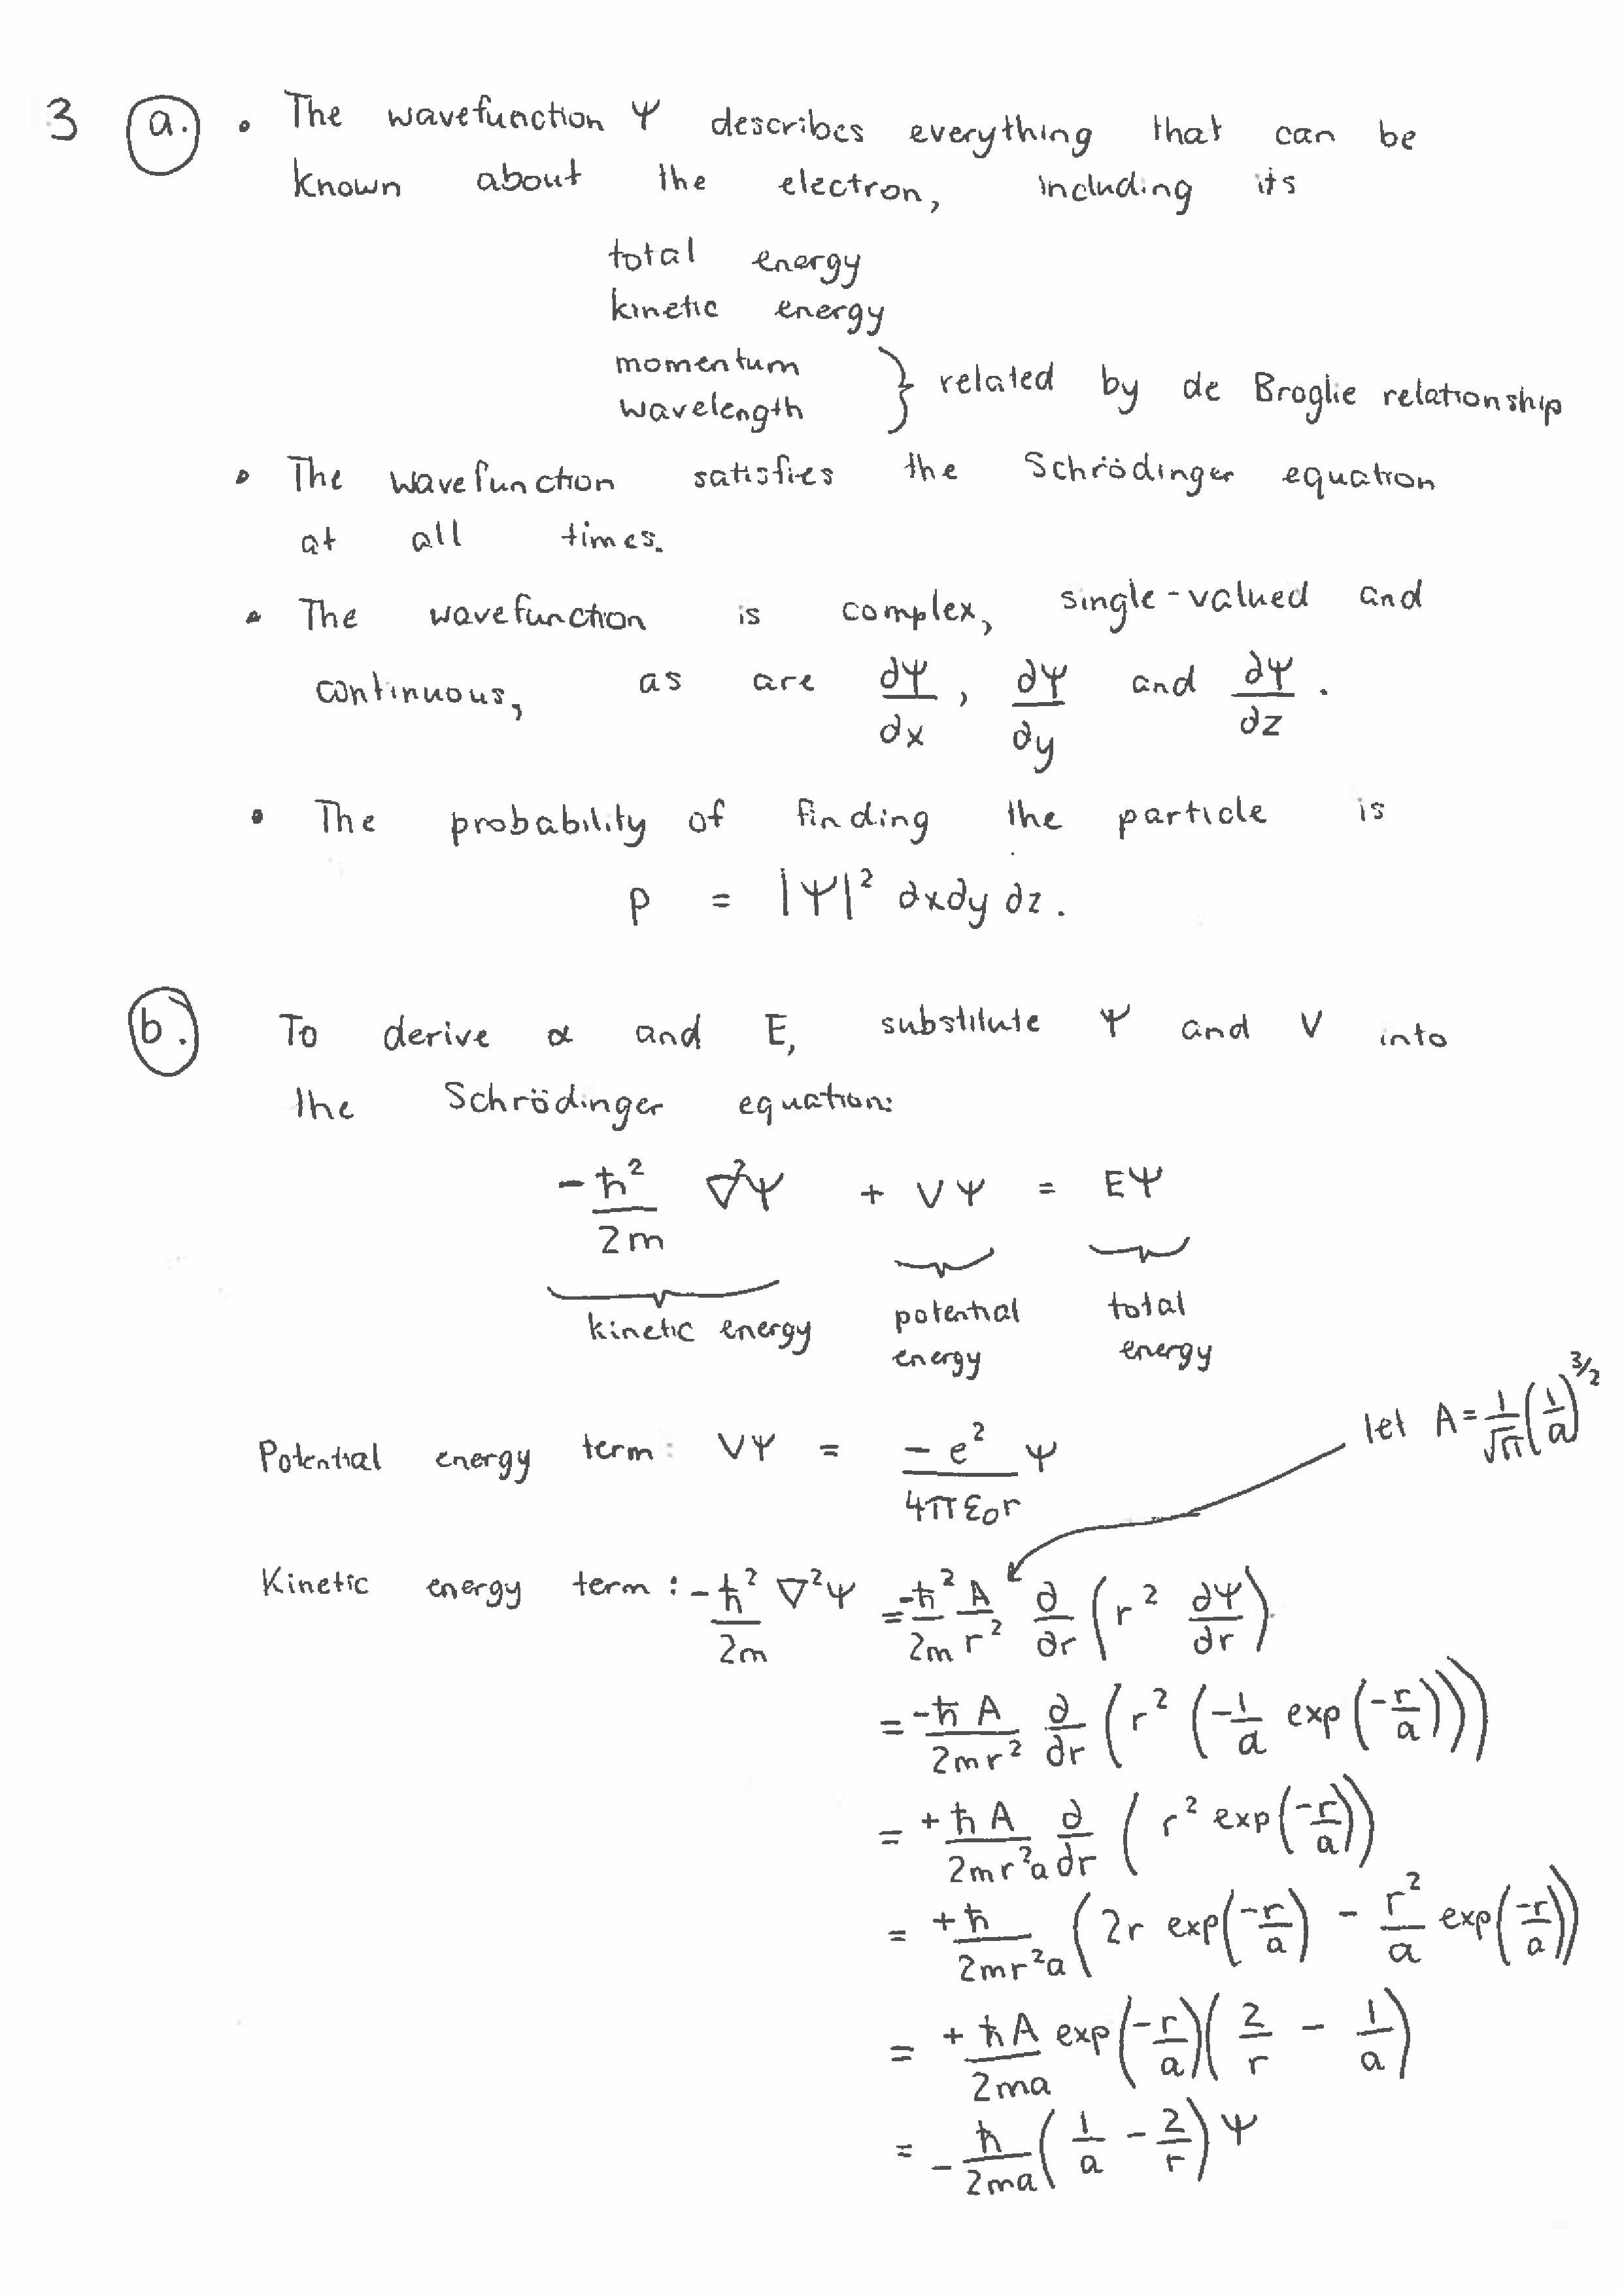 3 (a.) • The wavefunction Ψ describes everything that can be
known about the electron, including its
total energy
kinetic energy
momentum
wavelength } related by de Broglie relationship
• The wavefunction satisfies the Schrödinger equation
at all times.
• The wavefunction is complex, single-valued and
continuous, as are ∂Ψ/∂x, ∂Ψ/∂y and ∂Ψ/∂z.
• The probability of finding the particle is
P = |Ψ|² ∂x∂y∂z.
(b.) To derive α and E, substitute Ψ and V into
the Schrödinger equation:
-ħ²/2m ∇²Ψ + VΨ = EΨ
kinetic energy potential energy total energy
let A = 1/√π (1/a)^3/2
Potential energy term: VΨ = -e²/4πε₀r Ψ
Kinetic energy term: -ħ²/2m ∇²Ψ = -ħ²/2m A/r² ∂/∂r (r² ∂Ψ/∂r)
= -ħA/2mr² ∂/∂r (r² (-1/a exp(-r/a)))
= +ħA/2mr²a ∂/∂r (r² exp(-r/a))
= +ħ/2mr²a (2r exp(-r/a) - r²/a exp(-r/a))
= +ħA/2ma exp(-r/a)(2/r - 1/a)
= -ħ/2ma (1/a - 2/r) Ψ